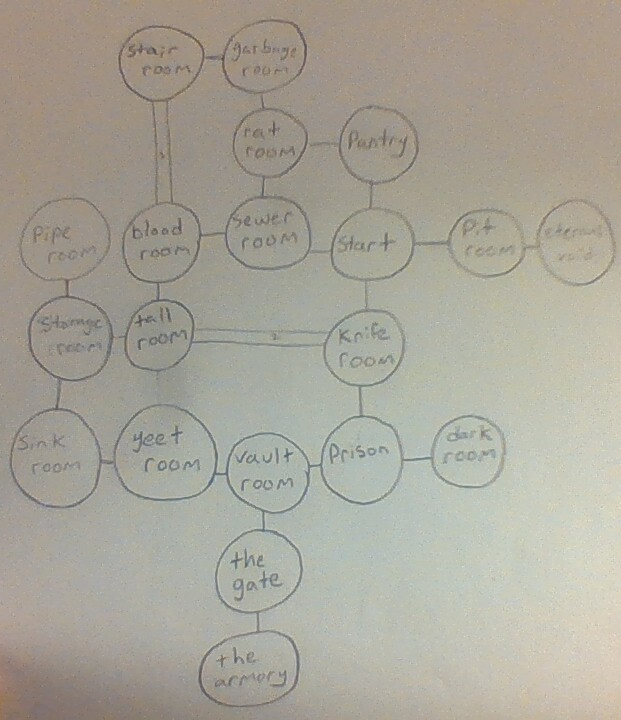 stair
room
garbage
room
rat
room
Pantry
pipe
room
blood
room
Sewer
room
Start
Pit
room
eternal
void
1
Storage
room
tall
room
2
Knife
room
Sink
room
yeet
room
vault
room
Prison
dark
room
the
gate
the
armory